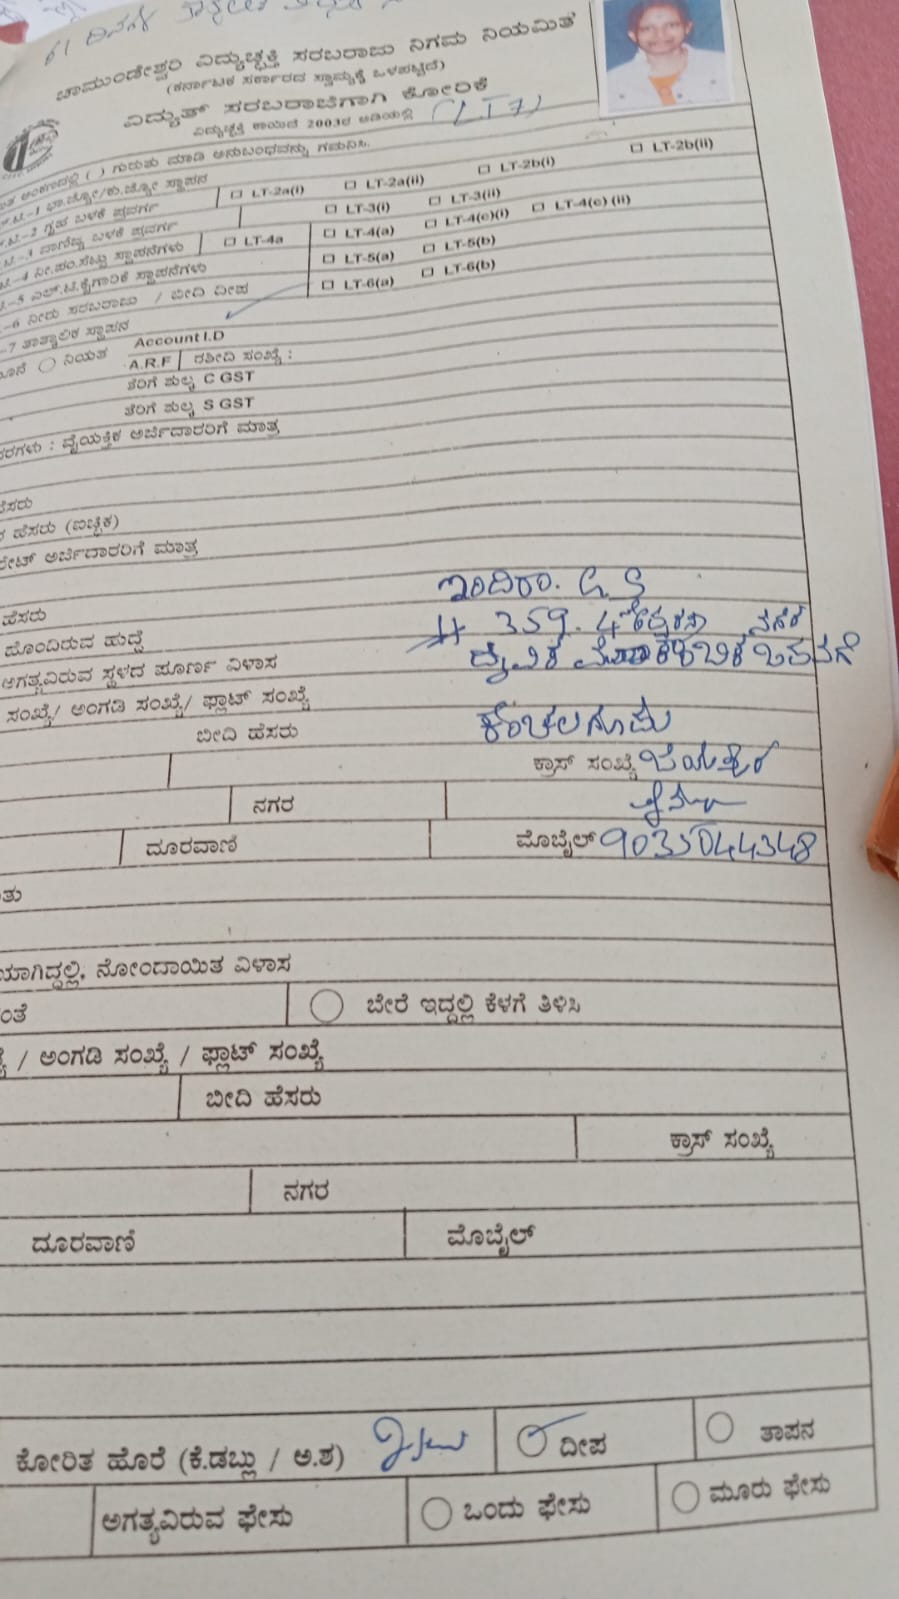 61 ದಿನಗಳ
ಚಾಮುಂಡೇಶ್ವರಿ ವಿದ್ಯುಚ್ಛಕ್ತಿ ಸರಬರಾಜು ನಿಗಮ ನಿಯಮಿತ
(ಕರ್ನಾಟಕ ಸರ್ಕಾರದ ಸ್ವಾಮ್ಯಕ್ಕೆ ಒಳಪಟ್ಟಿದೆ)
ವಿದ್ಯುತ್ ಸರಬರಾಜಿಗಾಗಿ ಕೋರಿಕೆ
ವಿದ್ಯುಚ್ಛಕ್ತಿ ಕಾಯಿದೆ 2003ರ ಅಡಿಯಲ್ಲಿ (LT7)
ಅಂಕಣದಲ್ಲಿ ( ) ಗುರುತು ಮಾಡಿ ಅನುಬಂಧವನ್ನು ಗಮನಿಸಿ.
-1 ಭಾ.ಜ್ಯೋ/ಕು.ಜ್ಯೋ ಸ್ಥಾಪನ
-2 ಗೃಹ ಬಳಕೆ ಪ್ರವರ್ಗ LT-2a(i) LT-2a(ii) LT-2b(i) LT-2b(ii)
-3 ವಾಣಿಜ್ಯ ಬಳಕೆ ಪ್ರವರ್ಗ LT-3(i) LT-3(ii)
-4 ನೀ.ಪಂ.ಸೆಟ್ಟು ಸ್ಥಾಪನೆಗಳು LT-4a LT-4(a) LT-4(c)(i) LT-4(c) (ii)
-5 ಎಲ್.ಟಿ.ಕೈಗಾರಿಕೆ ಸ್ಥಾಪನೆಗಳು LT-5(a) LT-5(b)
-6 ನೀರು ಸರಬರಾಜು / ಬೀದಿ ದೀಪ LT-6(a) LT-6(b)
-7 ತಾತ್ಕಾಲಿಕ ಸ್ಥಾಪನ
ನಿಯತ Account I.D
A.R.F ರಶೀದಿ ಸಂಖ್ಯೆ :
ತೆರಿಗೆ ಶುಲ್ಕ C GST
ತೆರಿಗೆ ಶುಲ್ಕ S GST
ವೈಯಕ್ತಿಕ ಅರ್ಜಿದಾರರಿಗೆ ಮಾತ್ರ
ಹೆಸರು
ಹೆಸರು (ಐಚ್ಛಿಕ)
ಅರ್ಜಿದಾರರಿಗೆ ಮಾತ್ರ
ಹೆಸರು ಇಂದಿರಾ. G S
ಹೊಂದಿರುವ ಹುದ್ದೆ # 359. ನಗರ
ಅಗತ್ಯವಿರುವ ಸ್ಥಳದ ಪೂರ್ಣ ವಿಳಾಸ
ಸಂಖ್ಯೆ/ ಅಂಗಡಿ ಸಂಖ್ಯೆ/ ಫ್ಲಾಟ್ ಸಂಖ್ಯೆ
ಬೀದಿ ಹೆಸರು
ಕ್ರಾಸ್ ಸಂಖ್ಯೆ
ನಗರ
ದೂರವಾಣಿ ಮೊಬೈಲ್ 9035044348
ನೋಂದಾಯಿತ ವಿಳಾಸ
ಬೇರೆ ಇದ್ದಲ್ಲಿ ಕೆಳಗೆ ತಿಳಿಸಿ
/ ಅಂಗಡಿ ಸಂಖ್ಯೆ / ಫ್ಲಾಟ್ ಸಂಖ್ಯೆ
ಬೀದಿ ಹೆಸರು
ಕ್ರಾಸ್ ಸಂಖ್ಯೆ
ನಗರ
ದೂರವಾಣಿ ಮೊಬೈಲ್
ಕೋರಿತ ಹೊರೆ (ಕೆ.ಡಬ್ಲು / ಅ.ಶ) ದೀಪ ತಾಪನ
ಅಗತ್ಯವಿರುವ ಫೇಸು ಒಂದು ಫೇಸು ಮೂರು ಫೇಸು